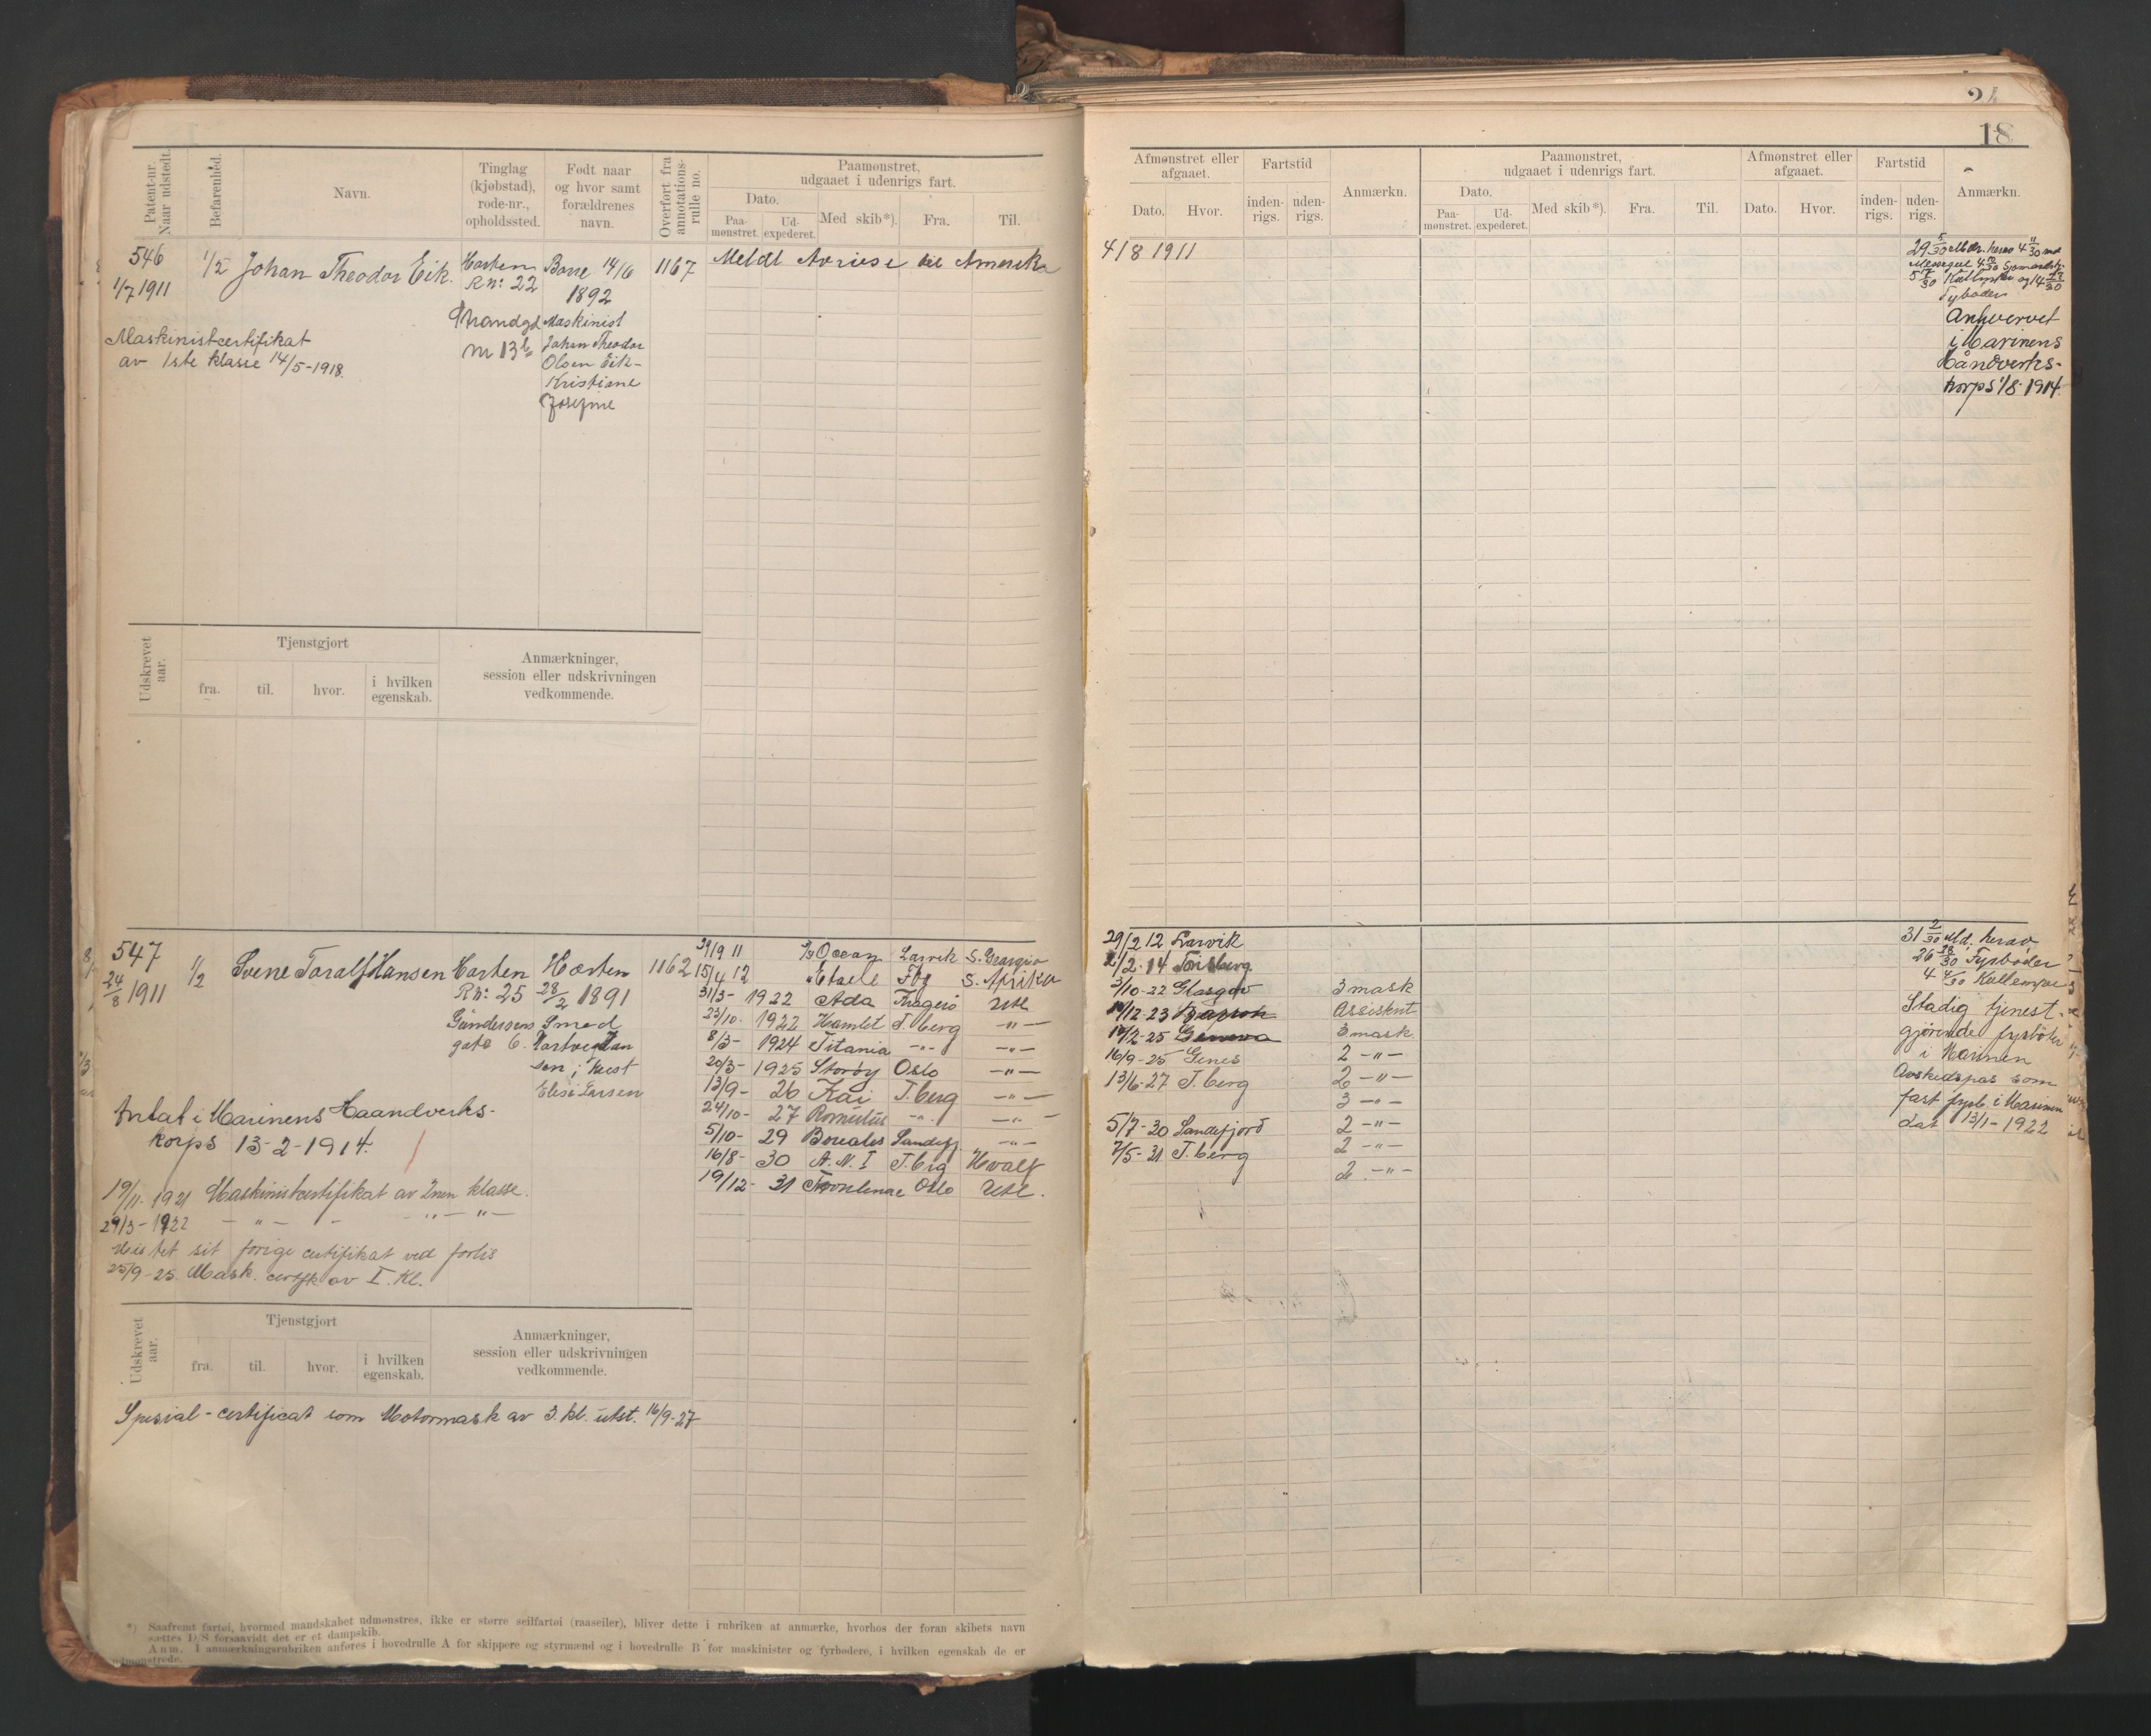 24
18
Patent-nr. Naar udstedt.
Befarenhed.
Navn.
Tinglag (kjøbstad), rode-nr., opholdssted.
Født naar og hvor samt forældrenes navn.
Overført fra annotations-rulle no.
Paamønstret, udgaaet i udenrigs fart.
Dato.
Paa-mønstret.
Ud-expederet.
Med skib*).
Fra.
Til.
Afmønstret eller afgaaet.
Dato.
Hvor.
Fartstid
inden-rigs.
uden-rigs.
Anmærkn.
Paamønstret, udgaaet i udenrigs fart.
Dato.
Paa-mønstret.
Ud-expederet.
Med skib*).
Fra.
Til.
Afmønstret eller afgaaet.
Dato.
Hvor.
Fartstid
inden-rigs.
uden-rigs.
Anmærkn.
546
1/7 1911
1/2
Johan Theodor Eik.
Horten
R No: 22
Strandgd
nr 13b
Borre 14/6
1892
Maskinist
Johan Theodor
Olsen Eik-
Kristiane
Josefine
1167
Meldt Avreise til Amerika
4/8 1911
Maskinistcertifikat
av 1ste klasse 14/5-1918.
29 5/30 Mdr. herav 4 11/30 md
5 17/30
Fyrböder
Anhvervet
i Marinens
Håndverks-
korps 1/8-1914.
Udskrevet aar.
Tjenstgjort
fra.
til.
hvor.
i hvilken egenskab.
Anmærkninger, session eller udskrivningen vedkommende.
547
24/8 1911
1/2
Svene Taralf Hansen
Horten
R No: 25
Gundersens
gate 6.
Horten
28/2 1891
Smed
Hartvig Han
sen; Hust
Elise Larsen
1162
Antat i Marinens Haandverks-
korps 13-2-1914.
19/11-1921 Maskinistcertifikat av 2nen klasse.
29/3-1922 - " - - - " - " -
Mistet sit forige certifikat ved forlis
25/9-25. Mask. certfk av I. Kl.
29/9 11 Ocean Larvik S. Georgia
15/4 12 Fbg S. Afrika
31/3- 1922 Ada Kragerö Utl
23/10- 1922 Hamlet T.berg -"-
8/3- 1924 Titania -"- -"-
20/3- 1925 Storöy Oslo -"-
13/9- 26 Kai T.berg -"-
24/10- 27 Romulus -"- -"-
5/10- 29 Borealis Sandefj -"-
16/8- 30 A.N.I T.brg Hvalf
19/12- 31 Oslo Utl.
29/2 12 Larvik
2/2-14 Tönsberg
3/10-22 Glasgov 3 mask
14/12-23 Assistent
14/2-25 Genova 3 mask
16/9-25 Genes 2 -"-
13/6-27 T.berg 2 -"-
3 -"-
5/7-30 Sandefjord 2 -"-
7/5-31 T.berg 2 -"-
2. -"-
31 2/30 Md. herav
26 28/30 Fyrböder
4 4/30 Kullemper
Stadig tjenest-
gjörende fyrböter
i Marinen
Avskedspas som
fast fyrb. i Marinen
dat 13/1-1922
Udskrevet aar.
Tjenstgjort
fra.
til.
hvor.
i hvilken egenskab.
Anmærkninger, session eller udskrivningen vedkommende.
Spesial-certificat som Motormask av 3. kl. utst. 16/9-27
*) Saafremt fartøi, hvormed mandskabet udmønstres, ikke er større seilfartøi (raaseiler), bliver dette i rubriken at anmærke, hvorhos der foran skibets navn
sættes D/S forsaavidt det er et dampskib.
Anm. I anmærkningsrubriken anføres i hovedrulle A for skippere og styrmænd og i hovedrulle B for maskinister og fyrbødere, i hvilken egenskab de er
udmønstrede.